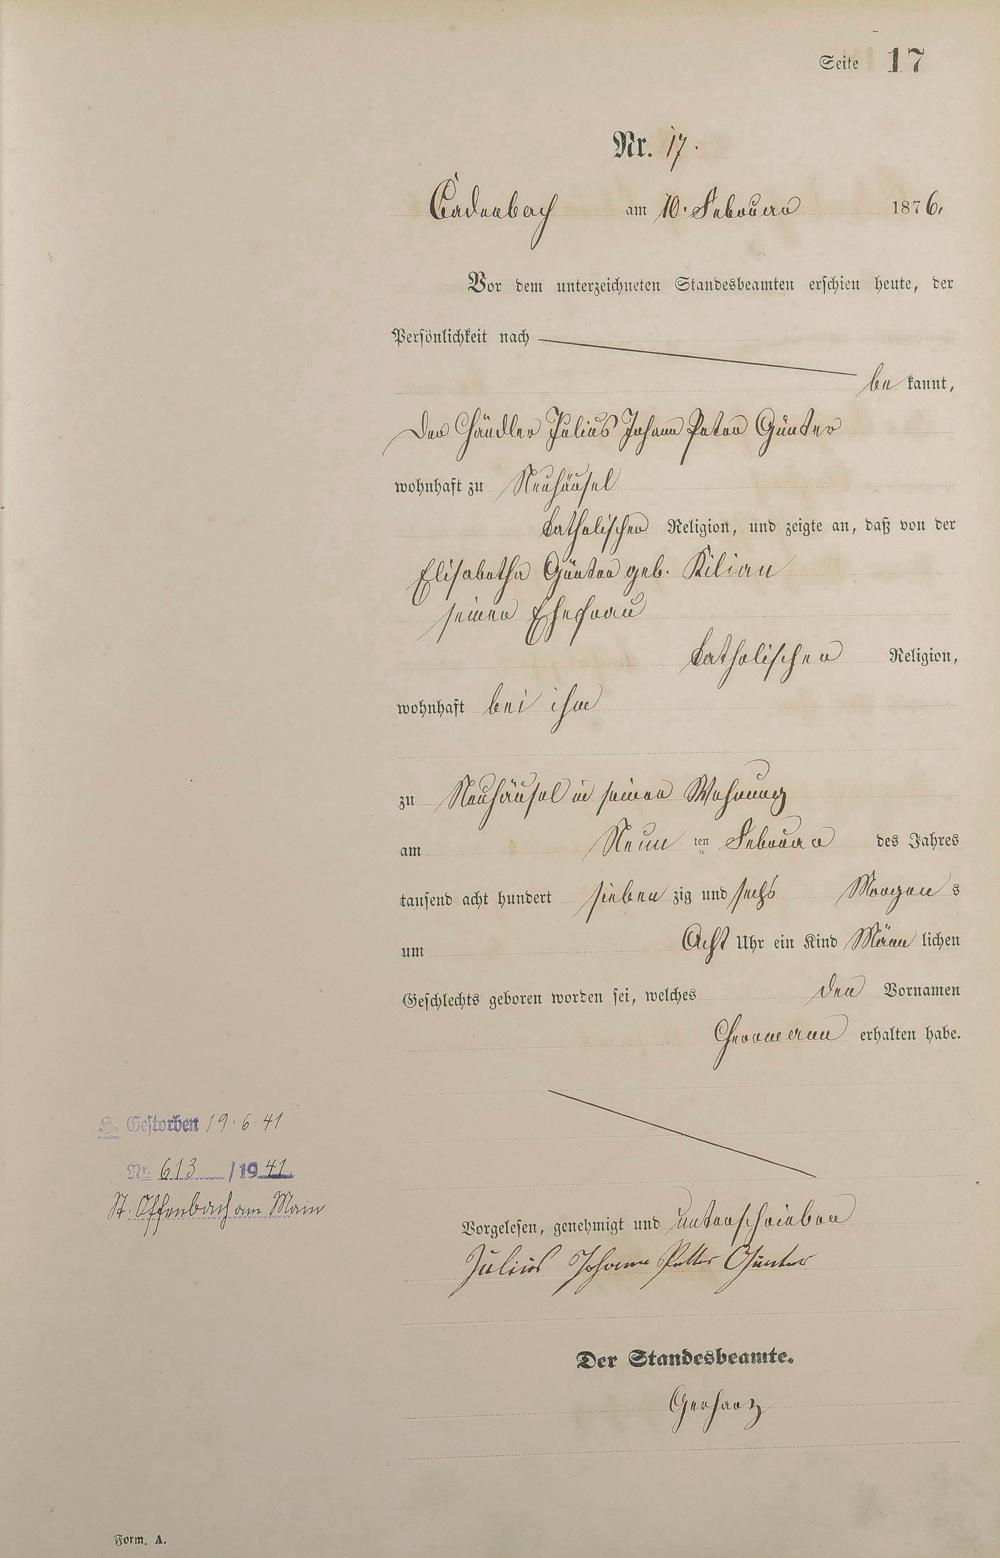 Seite 17
Nr. 17.
Cadenbach am 10. Februar 1876.
Vor dem unterzeichneten Standesbeamten erschien heute, der
Persönlichkeit nach
be kannt,
Der Händler Julius Johann Peter Günter
wohnhaft zu Neuhäusel
katholischer Religion, und zeigte an, daß von der
Elisabetha Günter geb. Kilian
seiner Ehefrau
katholischer Religion,
wohnhaft bei ihm
zu Neuhäusel in seiner Wohnung
am Neun ten Februar des Jahres
tausend acht hundert sieben zig und sechs Morgen s
um Acht Uhr ein Kind Männ lichen
Geschlechts geboren worden sei, welches den Vornamen
Herrmann erhalten habe.
H. Gestorben 19.6.41
Nr. 613 /1941
St. Offenbach am Main
Vorgelesen, genehmigt und unterschrieben
Julius Johann Petter Günter
Der Standesbeamte.
Gerharz
Form. A.